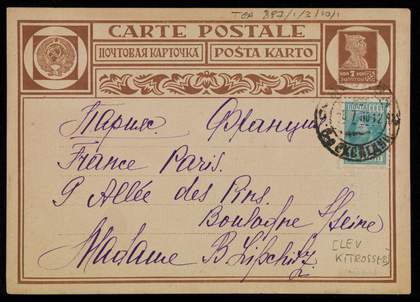 TGA 897/1/3/10/1
CARTE POSTALE
ПОЧТОВАЯ КАРТОЧКА
POŜTA KARTO
КОП 7 КОП
ЗОЛОТОМ
Париж. Франция
France Paris.
9 Allée des Pins.
Boulogne s/Seine)
Madame B. Lipchitz
[LEV
KITROSSER]